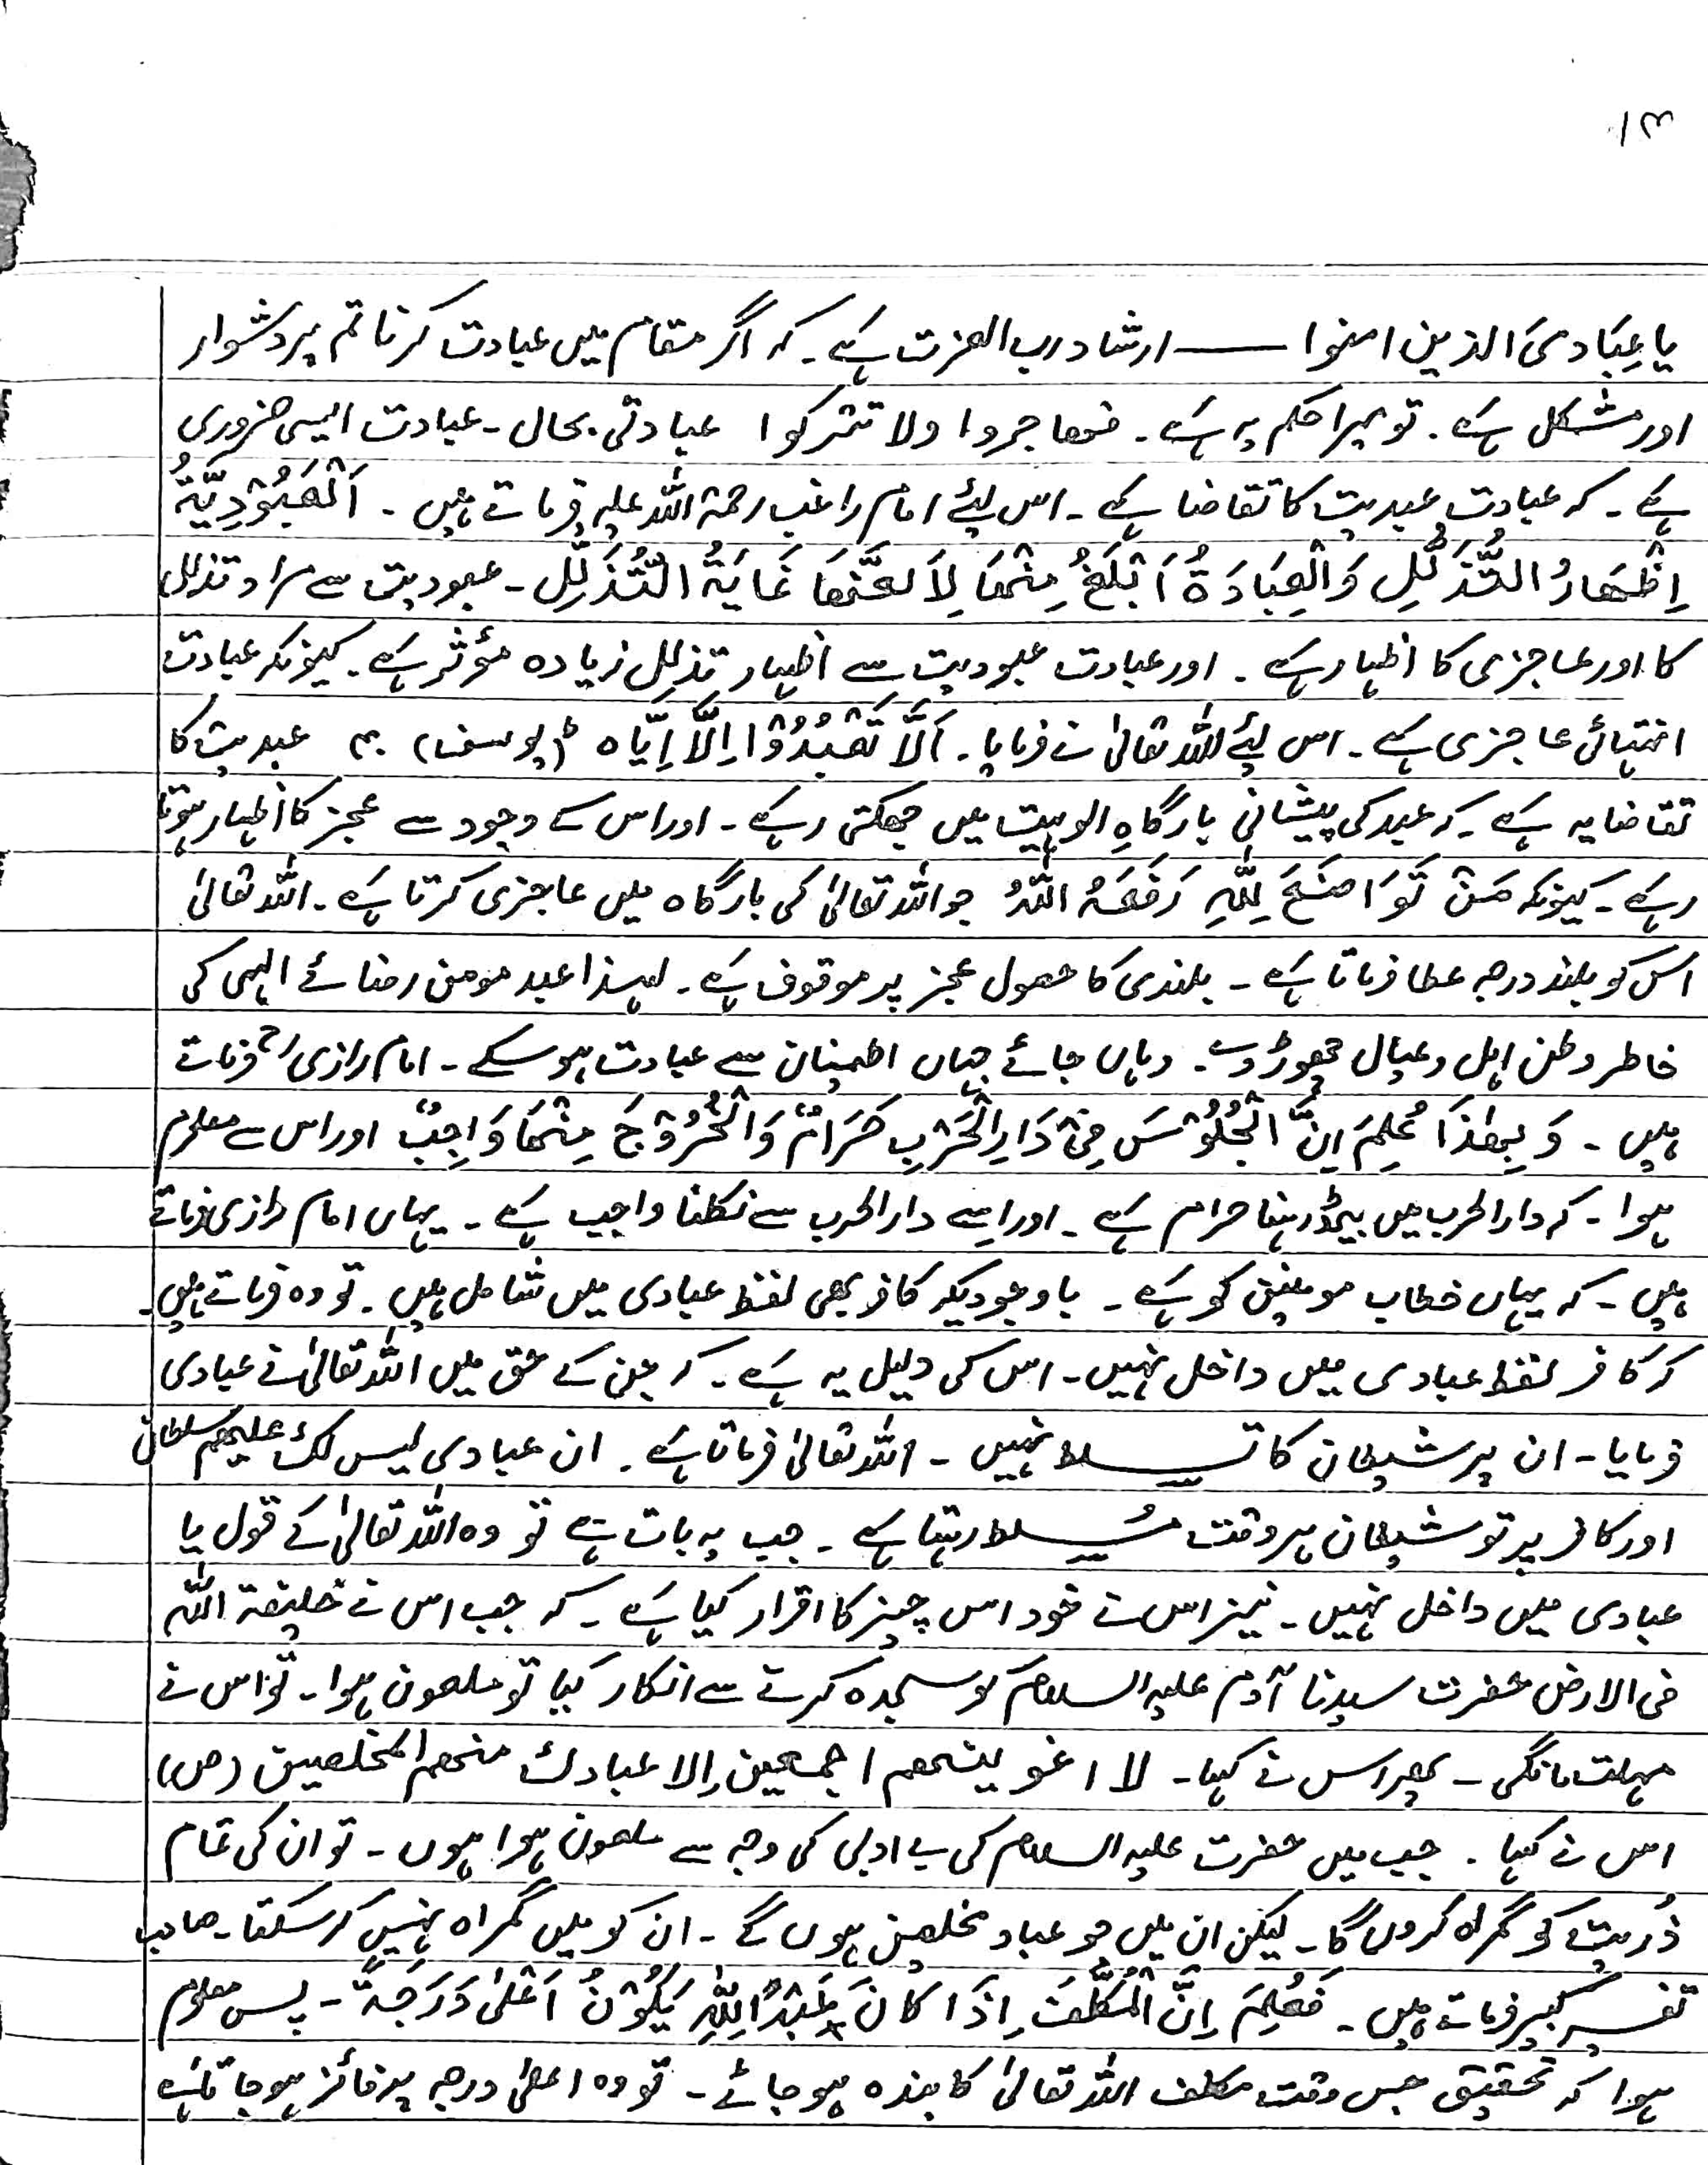 ۱۳
یا عِبَادِیَ الذین امنوا —— ارشاد رب العزت ہے۔ کہ اگر مقام میں عبادت کرنا تم پر دشوار
اور مشکل ہے۔ تو میرا حکم یہ ہے۔ فھاجروا ولا تترکوا عبادتی بحال۔ عبادت ایسی ضروری
ہے۔ کہ عبادت عبدیت کا تقاضا ہے۔ اس لیئے امام راغب رحمۃ اللہ علیہ فرماتے ہیں۔ اَلْعَبُوْدِیَّۃُ
اِظْھَارُ التَّذَلُّلِ وَالْعِبَادَۃُ اَبْلَغُ مِنْھَا لِاَنَّھَا غَایَۃُ التَّذَلُّلِ۔ عبودیت سے مراد تذلل
کا اور عاجزی کا اظہار ہے۔ اور عبادت عبودیت سے اظہار تذلل زیادہ مؤثر ہے۔ کیونکہ عبادت
انتہائی عاجزی ہے۔ اس لیئے اللہ تعالیٰ نے فرمایا۔ اَلَّا تَعْبُدُوْا اِلَّا اِیَّاہ ط (یوسف) ۴۰ عبدیت کا
تقاضا یہ ہے۔ کہ عبد کی پیشانی بارگاہِ الوہیت میں جھکتی رہے۔ اور اس کے وجود سے عجز کا اظہار ہوتا
رہے۔ کیونکہ مَنْ تَوَاضَعَ لِلّٰہِ رَفَعَہُ اللّٰہُ جو اللہ تعالیٰ کی بارگاہ میں عاجزی کرتا ہے۔ اللہ تعالیٰ
اس کو بلند درجہ عطا فرماتا ہے۔ بلندی کا حصول عجز پر موقوف ہے۔ لہذا عبد مومن رضائے الہی کی
خاطر وطن اہل و عیال چھوڑ دے۔ وہاں جائے جہاں اطمینان سے عبادت ہو سکے۔ امام رازیؒ فرماتے
ہیں۔ وَ بِھٰذَا عُلِمَ اِنَّ الْجُلُوْسَ فِیْ دَارِالْحَرْبِ حَرَامٌ وَالْخُرُوْجَ مِنْھَا وَاجِبٌ اور اس سے معلوم
ہوا۔ کہ دارالحرب میں بیٹھ رہنا حرام ہے۔ اور اسے دارالحرب سے نکلنا واجب ہے۔ یہاں امام رازی فرماتے
ہیں۔ کہ یہاں خطاب مومنین کو ہے۔ باوجودیکہ کافر بھی لفظ عبادی میں شامل ہیں۔ تو وہ فرماتے ہیں۔
کہ کافر لفظ عبادی میں داخل نہیں۔ اس کی دلیل یہ ہے۔ کہ جن کے حق میں اللہ تعالیٰ نے عبادی
فرمایا۔ ان پر شیطان کا تسلط نہیں۔ اللہ تعالیٰ فرماتا ہے۔ ان عبادی لیس لک علیھم سلطان
اور کافر پر تو شیطان ہر وقت مُسلط رہتا ہے۔ جب یہ بات ہے تو وہ اللہ تعالیٰ کے قول یا
عبادی میں داخل نہیں۔ نیز اس نے خود اس چیز کا اقرار کیا ہے۔ کہ جب اس نے خلیفۃ اللہ
فی الارض حضرت سیدنا آدم علیہ السلام کو سجدہ کرنے سے انکار کیا تو ملعون ہوا۔ تو اس نے
مہلت مانگی۔ پھر اس نے کہا۔ لا اغوینھم اجمعین اِلا عبادک منھم المخلصین (ص)
اس نے کہا۔ جب میں حضرت علیہ السلام کی بے ادبی کی وجہ سے ملعون ہوا ہوں۔ تو ان کی تمام
ذُریت کو گمراہ کروں گا۔ لیکن ان میں جو عباد مخلصین ہوں گے۔ ان کو میں گمراہ نہیں کر سکتا۔ صاحب
تفسیر کبیر فرماتے ہیں۔ فَعُلِمَ اِنَّ الْمُکَلَّفَ اِذَا کَانَ عَبْدُ اللّٰہِ یَکُوْنُ اَعْلٰی دَرَجَۃً۔ پس معلوم
ہوا کہ تحقیق جس وقت مکلف اللہ تعالیٰ کا بندہ ہو جائے۔ تو وہ اعلیٰ درجہ پر فائز ہو جاتا ہے